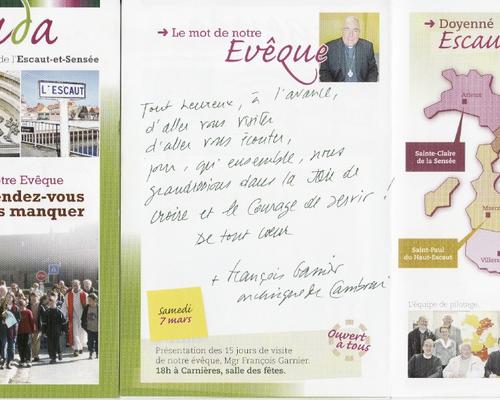 da
de l'Escaut-et-Sensée
L'ESCAUT
otre Evêque
endez-vous
s manquer
→ Le mot de notre
Evêque
Tout heureux, à l'avance,
d'aller vous visiter
d'aller vous écouter,
pour, qu'ensemble, nous
grandissions dans la Joie de
croire et le Courage de servir !
De tout cœur
+ François Garnier
archevêque de Cambrai
Samedi
7 mars
Ouvert
à tous
Présentation des 15 jours de visite
de notre évêque, Mgr François Garnier.
18h à Carnières, salle des fêtes.
→ Doyenné
Escau
Sainte-Claire
de la Sensée
Saint-Paul
du Haut-Escaut
Villers
L'équipe de pilotage.